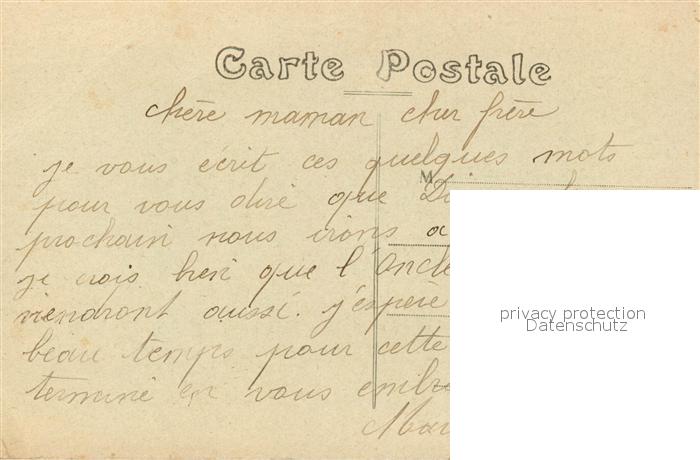 Carte Postale
chère maman cher frère
je vous écrit ces quelques mots
M
pour vous diré que Di
prochain nous irons a
je crois bien que l'oncle
viendront aussi. j'espère
privacy protection
Datenschutz
beau temps pour cette
terminé en vous embr
Mar